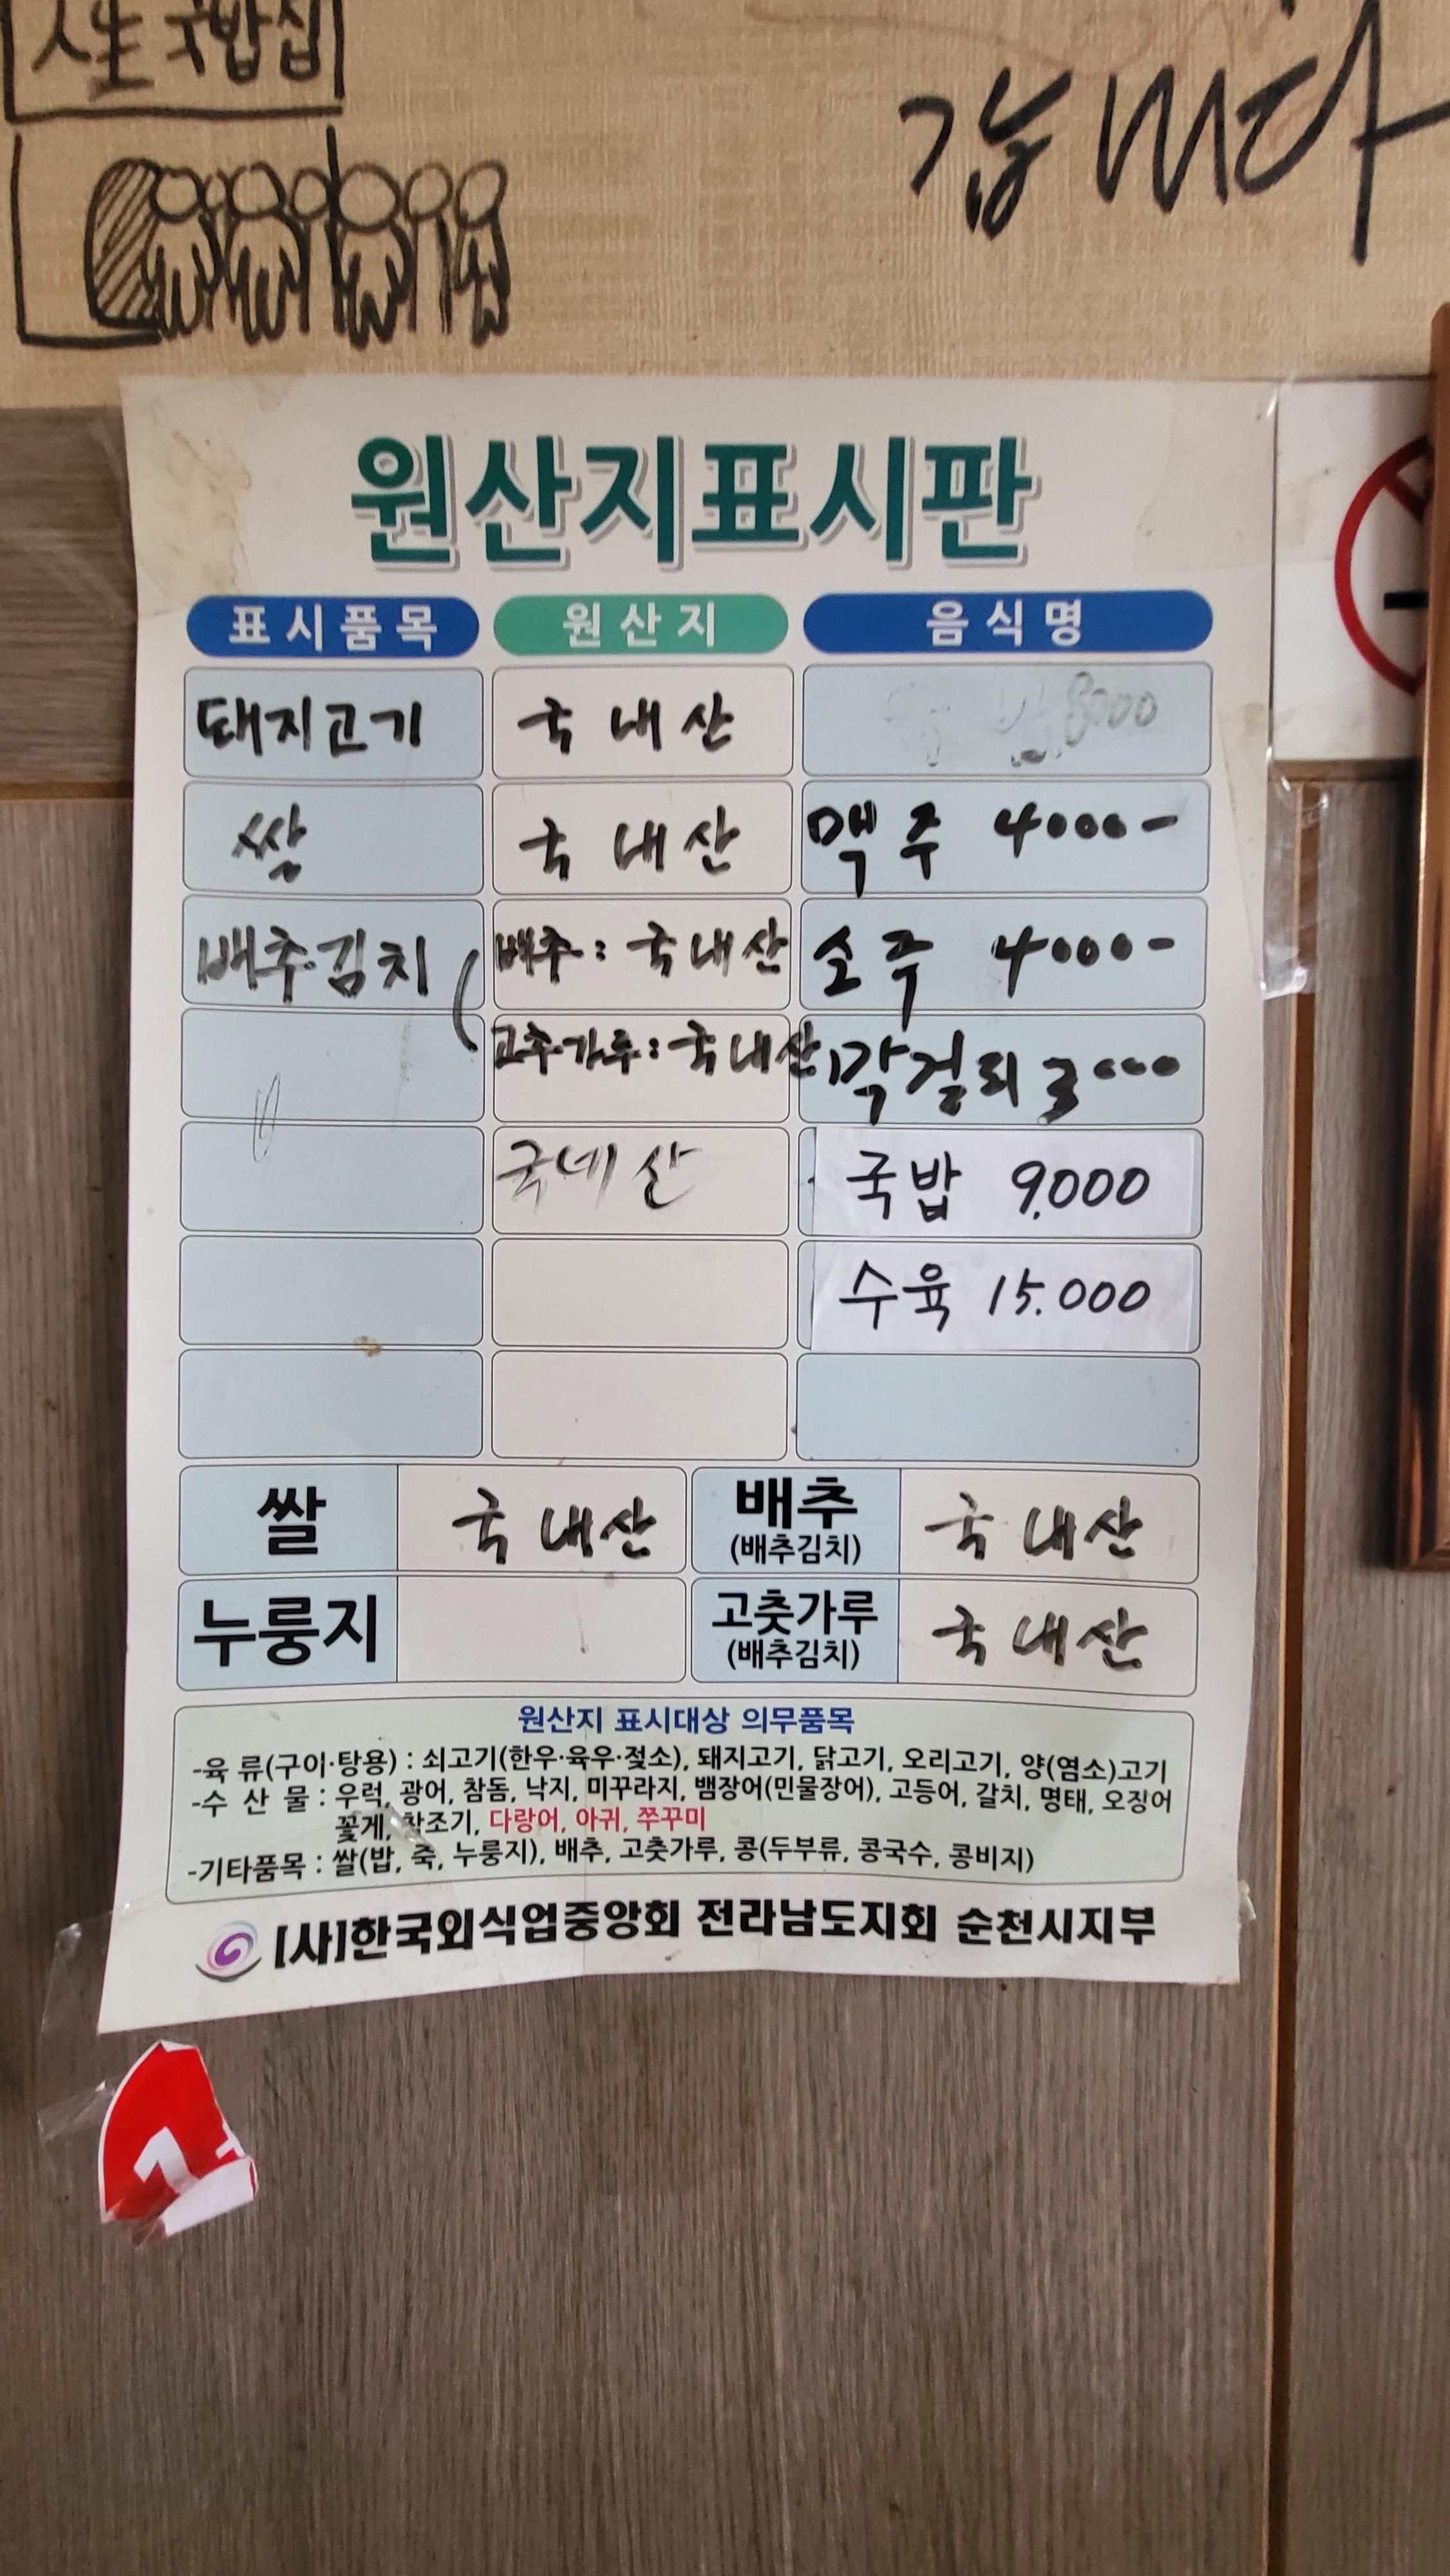 人生 국밥집
갑니다
원산지표시판
표시품목 원산지 음식명
돼지고기 국내산 8000
쌀 국내산 맥주 4000-
배추김치 ( 배추: 국내산 소주 4000-
고추가루: 국내산 막걸리 3000
국네산 국밥 9.000
수육 15.000
쌀 국내산 배추 (배추김치) 국내산
누룽지 고춧가루 (배추김치) 국내산
원산지 표시대상 의무품목
-육 류(구이·탕용) : 쇠고기(한우·육우·젖소), 돼지고기, 닭고기, 오리고기, 양(염소)고기
-수 산 물 : 우럭, 광어, 참돔, 낙지, 미꾸라지, 뱀장어(민물장어), 고등어, 갈치, 명태, 오징어
꽃게, 참조기, 다랑어, 아귀, 쭈꾸미
-기타품목 : 쌀(밥, 죽, 누룽지), 배추, 고춧가루, 콩(두부류, 콩국수, 콩비지)
[사]한국외식업중앙회 전라남도지회 순천시지부
1+